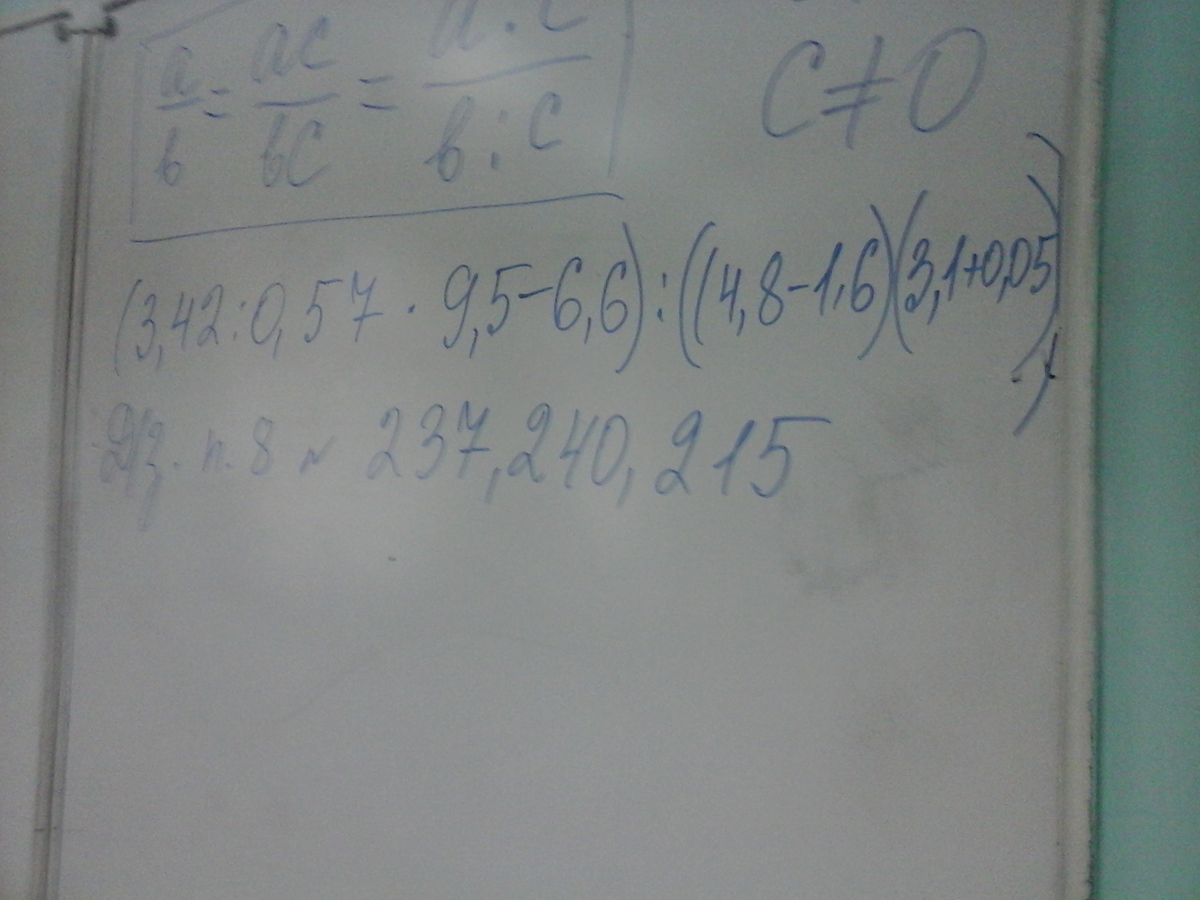 a/b = ac/bc = a:c/b:c
c≠0
(3,42:0,57 · 9,5-6,6):((4,8-1,6)(3,1+0,05)
)
Д/з. п.8 № 237,240,215